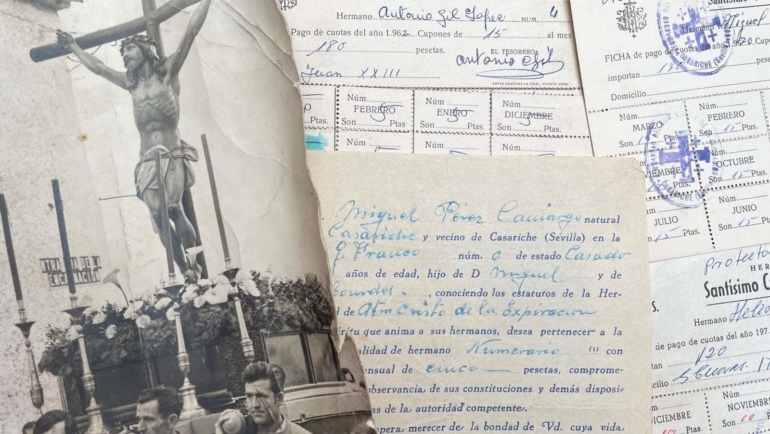 Hermano Antonio Gil Lopez NUM. 4
Pago de cuotas del año 1.962 Cupones de 15 al mes
180 pesetas.
EL TESORERO
Juan XXIII
Núm. Núm. Núm.
FEBRERO ENERO DICIEMBRE
Son 5 Ptas. Son 5 Ptas. Son 5 Ptas.
Santísimo
Hermano Miguel
FICHA de pago de cuotas del año 19 70 Cupones
importan 180 pesetas
Domicilio
Núm. Núm.
MARZO FEBRERO
Son 15 Ptas. Son 15 Ptas.
NOVIEMBRE OCTUBRE
Son 15 Ptas.
JULIO JUNIO
Ptas. Son 15 Ptas.
Miguel Pérez Camargo natural
Casariche y vecino de Casariche (Sevilla) en la
G. Franco núm. 0 de estado Casado
años de edad, hijo de D Miguel y de
Lourdes, conociendo los estatutos de la Her-
Stmo Cristo de la Expiracion
íritu que anima a sus hermanos, desea pertenecer a la
alidad de hermano Numerario (1) con
ensual de cinco pesetas, comprome-
observancia de sus constituciones y demás disposi-
s de la autoridad competente.
spera merecer de la bondad de Vd. cuya vida
protector
HER
Santísimo C
Hermano Helio
de pago de cuotas del año 197
120
DICIEMBRE NOVIEMBRE